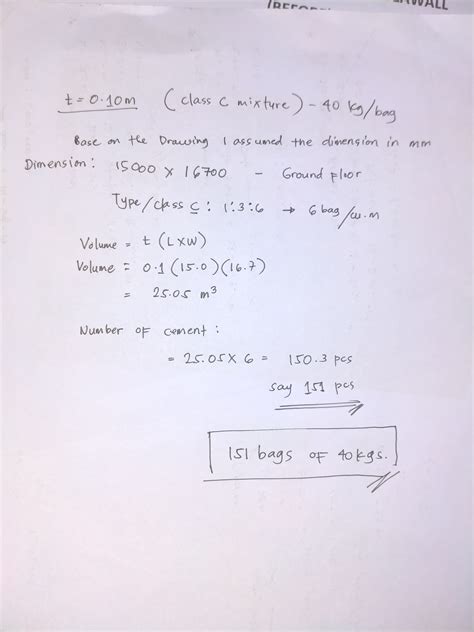 t = 0.10m (class C mixture) - 40 kg/bag
Base on the Drawing I assumed the dimension in mm
Dimension: 15000 x 16700 - Ground floor
Type/class C: 1:3:6 → 6 bag/cu.m
Volume = t (LXW)
Volume = 0.1 (15.0)(16.7)
= 25.05 m³
Number of cement:
= 25.05 X 6 = 150.3 pcs
say 151 pcs
151 bags of 40kgs.